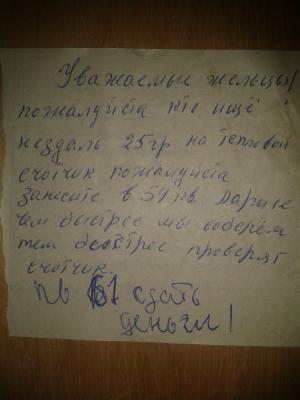 Уважаемые жельцы!
пожалуйста кто ищё
нездаль 25гр на тепловой
счотчик пожалуйста
занесите в 54 кв. Ларисе
чем быстрее мы соберём
тем бестрес проверят
счотчик.
кв 61 сдать
деньги!